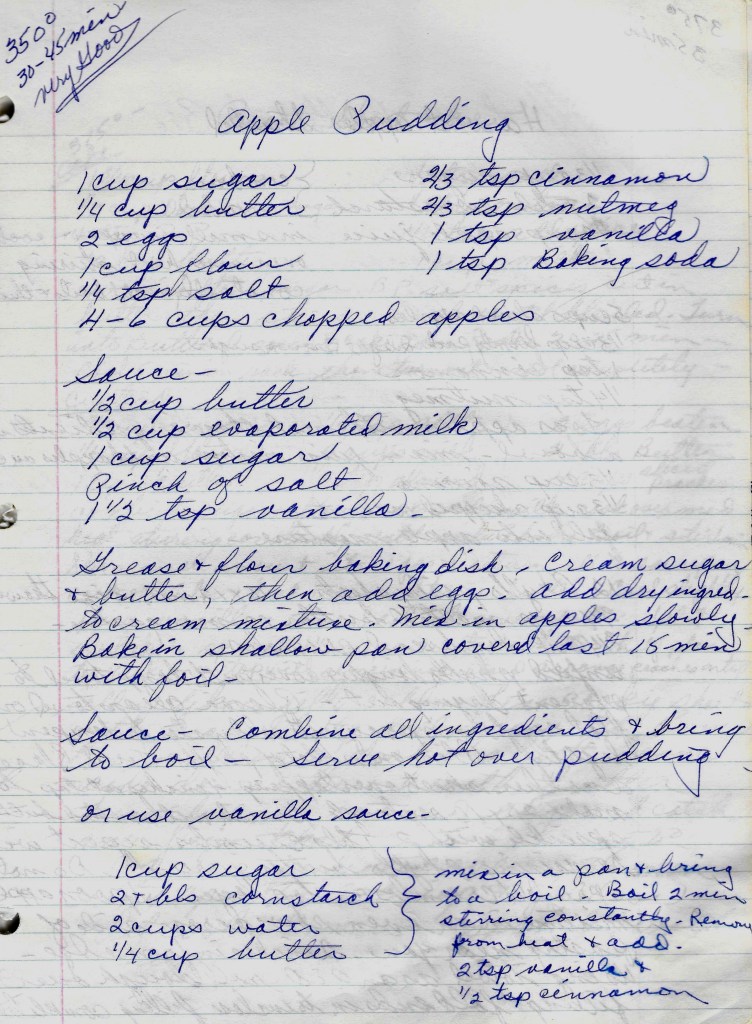 350°
30-45 min
very Good
Apple Pudding
1 cup sugar
1/4 cup butter
2 eggs
1 cup flour
1/4 tsp salt
4-6 cups chopped apples
2/3 tsp cinnamon
2/3 tsp nutmeg
1 tsp vanilla
1 tsp Baking soda
Sauce -
1/2 cup butter
1/2 cup evaporated milk
1 cup sugar
Pinch of salt
1 1/2 tsp vanilla -
Grease + flour baking dish. Cream sugar
+ butter, then add eggs. add dry ingred-
to cream mixture. Mix in apples slowly.
Bake in shallow pan covered last 15 min
with foil -
Sauce - Combine all ingredients + bring
to boil - Serve hot over pudding
or use vanilla sauce -
1 cup sugar
2 tbls cornstarch
2 cups water
1/4 cup butter
mix in a pan + bring
to a boil - Boil 2 min
stirring constantly - Remove
from heat + add.
2 tsp vanilla +
1/2 tsp cinnamon
375°
35 min